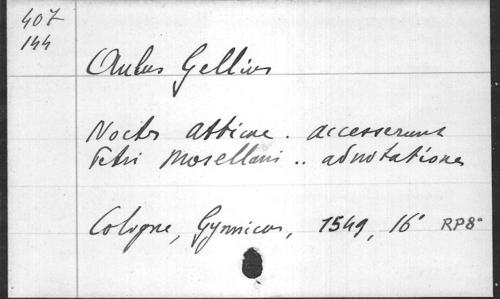 407
144
Aulus Gellius
Noctes atticae. accesserunt
Petri Mosellani .. adnotationes
Cologne, Gymnicus, 1549, 16° RP8°